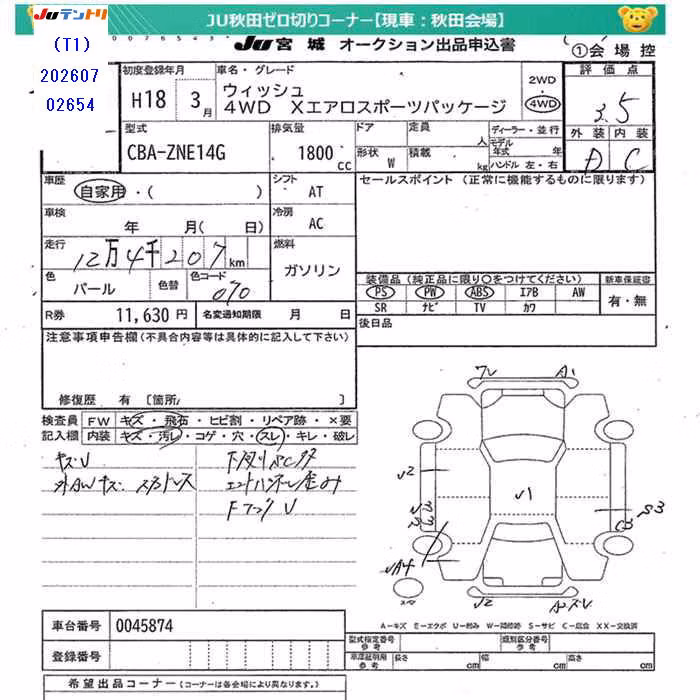 JUテントリ
JU秋田ゼロ切りコーナー【現車：秋田会場】
(T1)
202607
02654
JU宮城 オークション出品申込書
①会場控
初度登録年月
H18 3月
車名・グレード
ウィッシュ
4WD Xエアロスポーツパッケージ
2WD
4WD
評価点
3.5
外装 内装
D C
型式
CBA-ZNE14G
排気量
1800 cc
ドア
形状 W
定員 人
積載 kg
ディーラー・並行
モデル年式 年
ハンドル 左・右
車歴
自家用・( )
シフト
AT
セールスポイント (正常に機能するものに限ります)
車検
年 月( 日)
冷房
AC
走行
12万4千207km
燃料
ガソリン
色
パール
色替
色コード
070
装備品 (純正品に限り〇をつけてください)
PS PW ABS エアB AW
SR ナビ TV カワ
新車保証書
有・無
R券
11,630 円
名変通知期限 月 日
後日品
注意事項申告欄(不具合内容等は具体的に記入して下さい)
修復歴 有 [箇所 ]
検査員記入欄
FW キズ・飛石・ヒビ割・リペア跡・×要
内装 キズ・汚レ・コゲ・穴・スレ・キレ・破レ
キズU
A1
U2
U1
S3
U2
車台番号
0045874
登録番号
A-キズ E-エクボ U-凹み W-補修跡 S-サビ C-腐食 XX-交換済
型式指定番号 参考
類別区分番号 参考
車庫証明用 参考
長さ cm
幅 cm
高さ cm
希望出品コーナー (コーナーは各会場により異なります。)